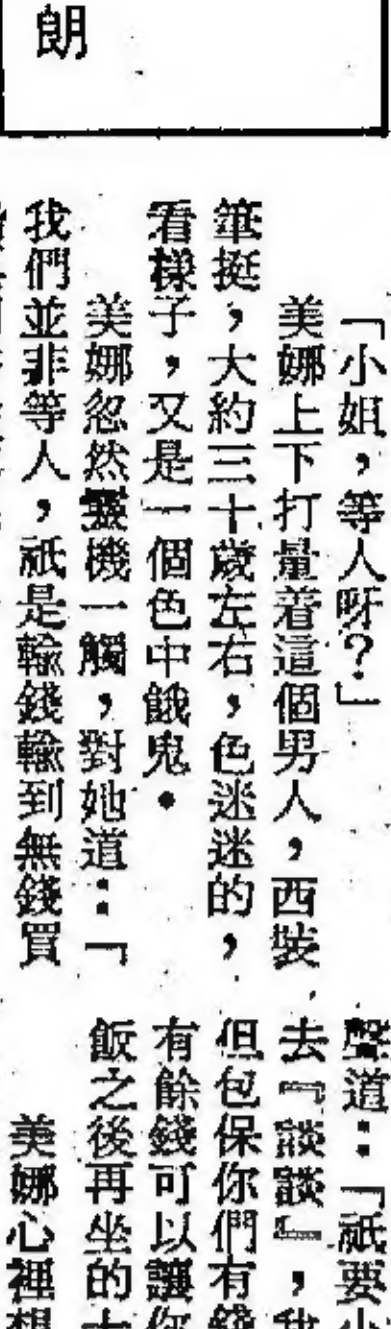 朗
「小姐，等人呀？」
美娜上下打量着這個男人，西裝
筆挺，大約三十歲左右，色迷迷的，
看樣子，又是一個色中餓鬼。
美娜忽然靈機一觸，對她道：「
我們並非等人，祗是輸錢輸到無錢買
聲道：「祗要小
去『談談』，我
但包保你們有錢
有餘錢可以讓你
飯之後再坐的
美娜心裡想